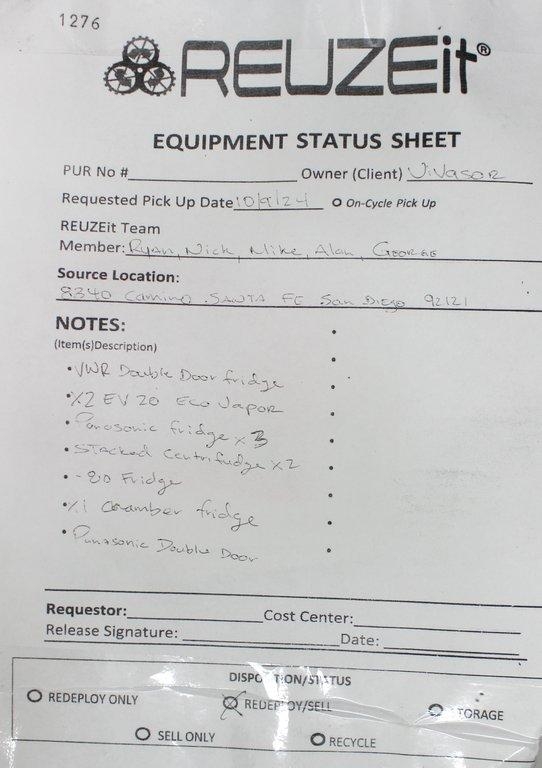 1276
REUZEit®
EQUIPMENT STATUS SHEET
PUR No # Owner (Client) ViVasor
Requested Pick Up Date 10/9/24 O On-Cycle Pick Up
REUZEit Team
Member: Ryan, Nick, Mike, Alan, George
Source Location:
9340 Camino SANTA FE San Diego 92121
NOTES:
(Item(s)Description)
• VWR Double Door fridge
• X2 EV 20 Eco Vapor
• Panasonic fridge x 3
• STACKED Centrifudge x2
• -80 Fridge
• X1 chamber fridge
• Panasonic Double Door
Requestor: Cost Center:
Release Signature: Date:
DISPO TION/STATUS
O REDEPLOY ONLY
REDEPLOY/SELL
STORAGE
O SELL ONLY
O RECYCLE